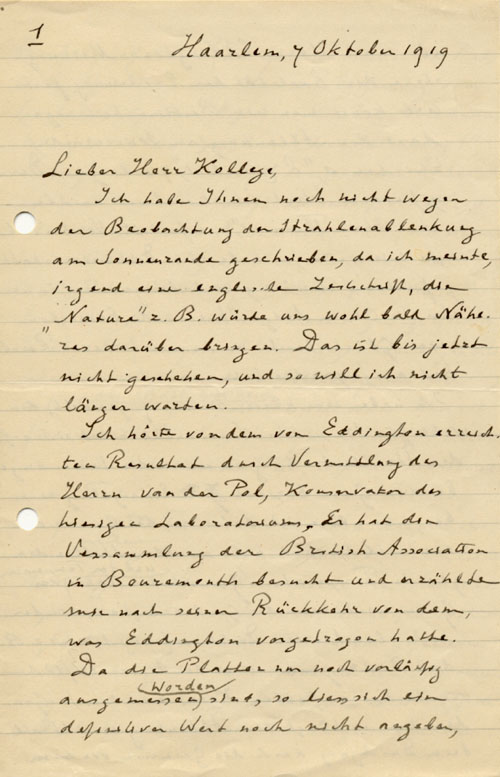 1
Haarlem, 7 Oktober 1919
Lieber Herr Kollege,
Ich habe Ihnen noch nicht wegen
der Beobachtung der Strahlenablenkung
am Sonnenrande geschrieben, da ich meinte,
irgend eine englische Zeitschrift, die
„Nature" z. B. würde uns wohl bald Nähe-
res darüber bringen. Das ist bis jetzt
nicht geschehen, und so will ich nicht
länger warten.
Ich hörte von dem von Eddington erreich-
ten Resultat durch Vermittlung des
Herrn van der Pol, Konservator des
hiesigen Laboratoriums. Er hat die
Versammlung der British Association
in Bournemouth besucht und erzählte
mir nach seiner Rückkehr von dem,
was Eddington vorgetragen hatte.
Da die Platten nur noch vorläufig
worden
ausgemessen sind, so liess sich ein
definitiver Wert noch nicht angeben,